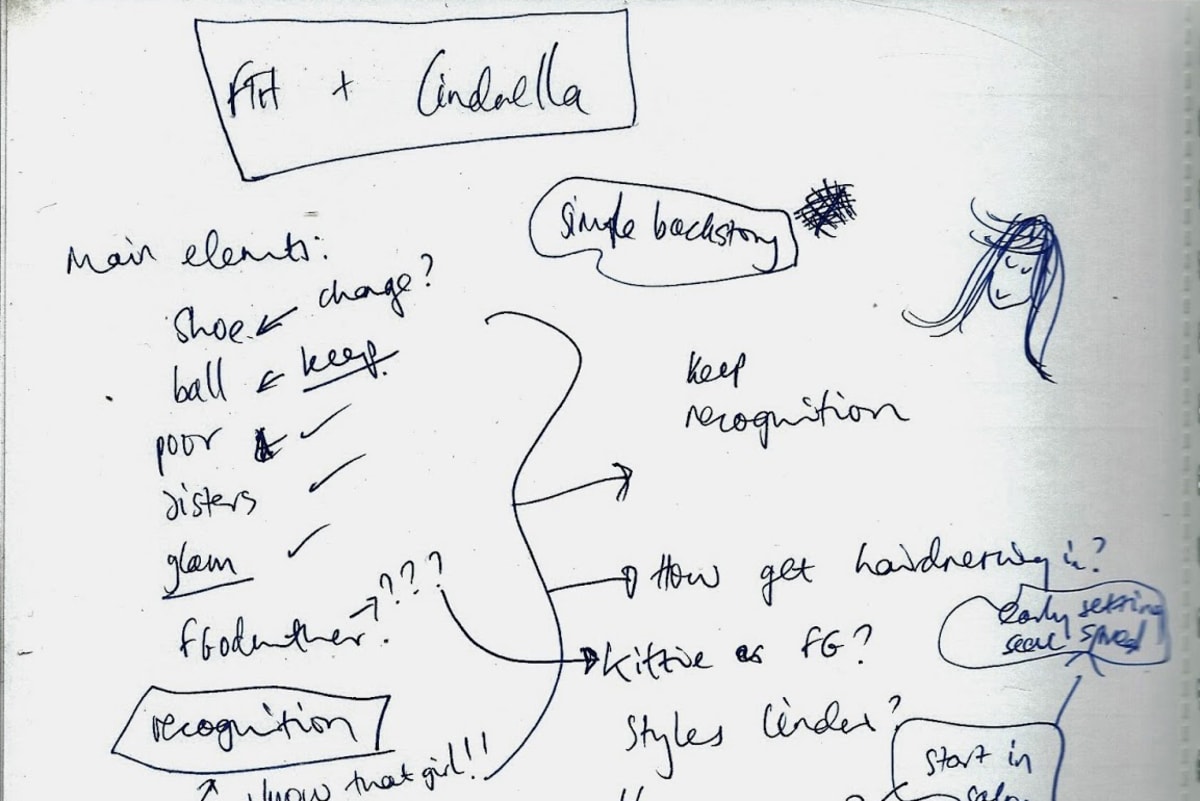 FTH + Cinderella
simple backstory
Main elements:
Shoe ← change?
ball ← keep
poor ← ✓
sisters ✓
glam ✓
FGodmother. → ???
recognition
↑ I know that girl!!
keep
recognition
How get hairdressing in?
early setting
Kittie as FG?
Styles Cinder?
start in
salon